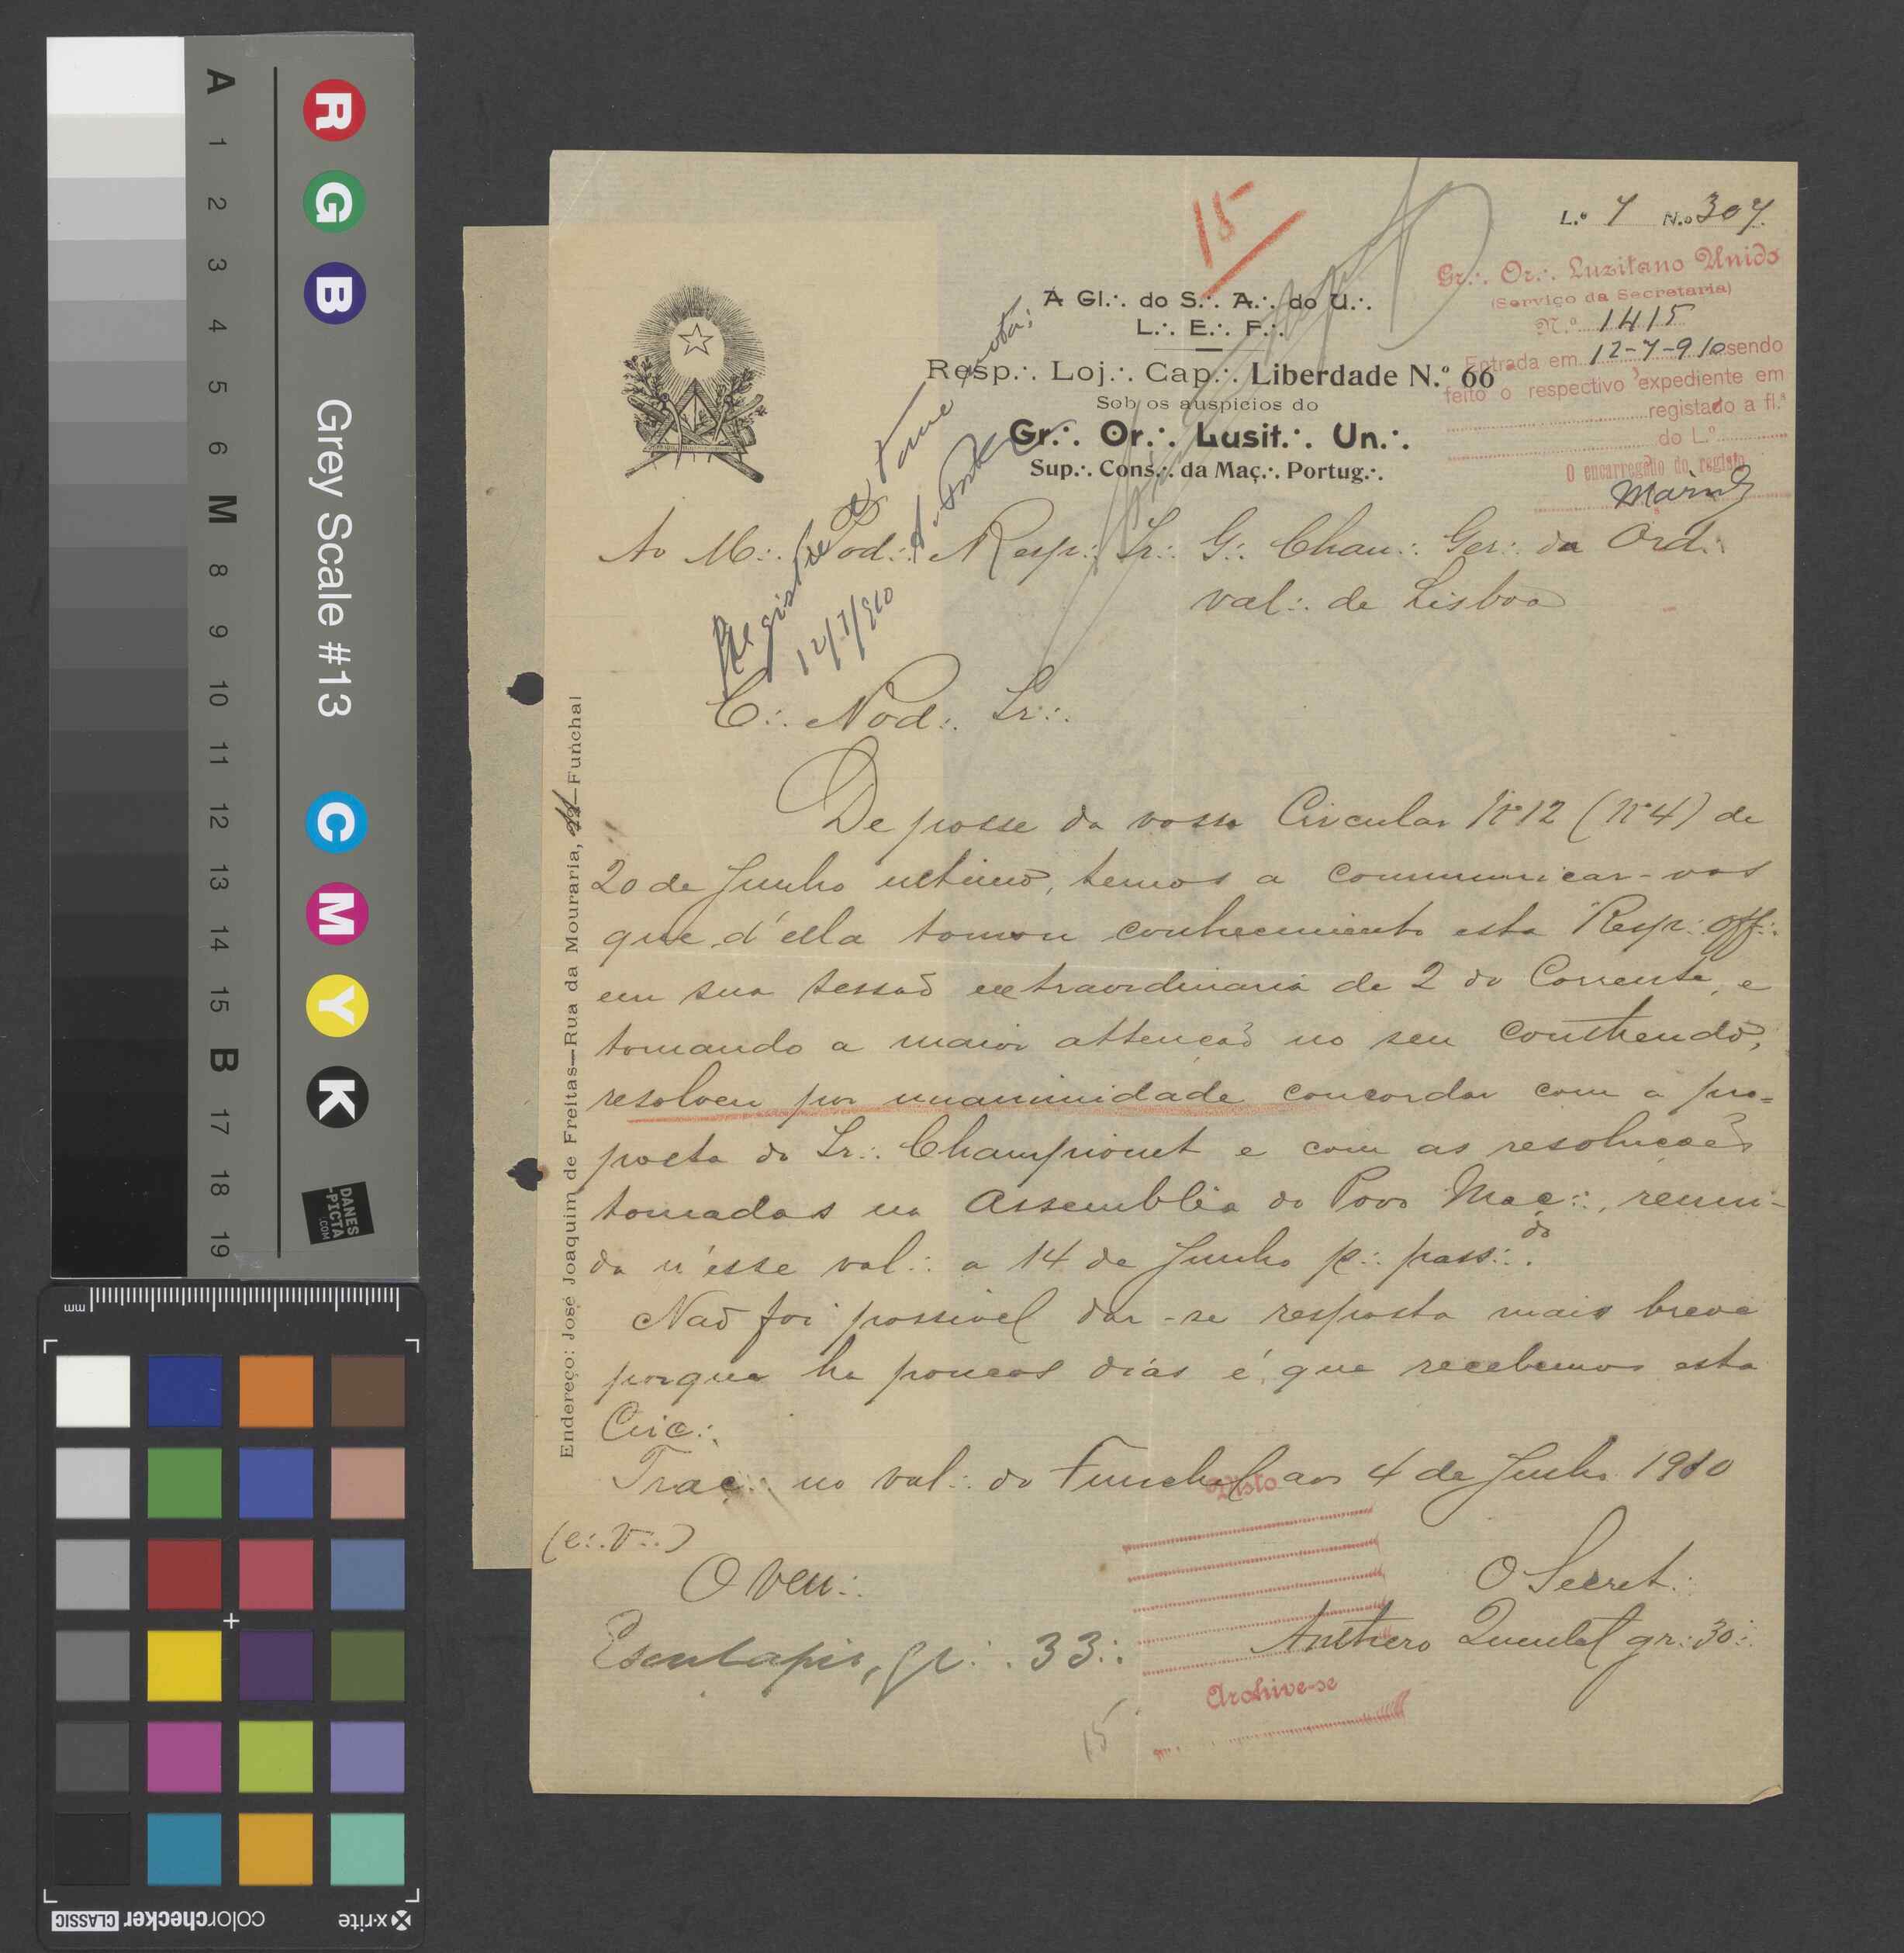 L.º 7 N.º 307.
15
Gr∴ Or∴ Luzitano Unido
(Serviço da Secretaria)
N.º 1415
Entrada em 12-7-910 sendo
feito o respectivo expediente em
registado a fl.ª
do L.º
O encarregado do registo
A Gl∴ do S∴ A∴ do U∴
L∴ E∴ F∴
Resp∴ Loj∴ Cap∴ Liberdade N.º 66
Sob os auspicios do
Gr∴ Or∴ Lusit∴ Un∴
Sup∴ Cons∴ da Maç∴ Portug∴
Registe-se e tome nota:
12/7/910
Ao M∴ Pod∴ e Resp∴ Ir∴ G∴ Chan∴ Ger∴ da Ord∴
val∴ de Lisboa
C∴ Pod∴ Ir∴
De posse da vossa Circular Nº 12 (Nº 4) de
20 de Junho ultimo, temos a communicar-vos
que d'ella tomou conhecimento esta Resp∴ Off∴
em sua sessaõ extraordinaria de 2 do Corrente, e
tomando a maior attençaõ no seu conthendo,
resolveu por unanimidade concordar com a pro=
posta do Ir∴ Championet e com as resoluçoēs
tomadas na Assemblêa do Povo Maç∴, reuni-
da n'esse val∴ a 14 de Junho p∴ pass∴ do.
Naõ foi possivel dar-se resposta mais breve
porque ha poucos dias é que recebemos esta
Circ∴
Traç∴ no val∴ do Funchal aos 4 de Julho 1910
(e∴ v∴)
O Ven∴
O Secret∴
Esculapio, gr∴ 33∴
Anthero Quental gr∴ 30∴
Visto
Archive-se
15
Endereço: José Joaquim de Freitas—Rua da Mouraria, —Funchal
A 1 2 3 4 5 6 M 8 9 10 11 12 13 14 15 B 17 18 19
R G B Grey Scale #13 C M Y K
DANES
-PICTA
.COM
mm
x-rite colorchecker CLASSIC